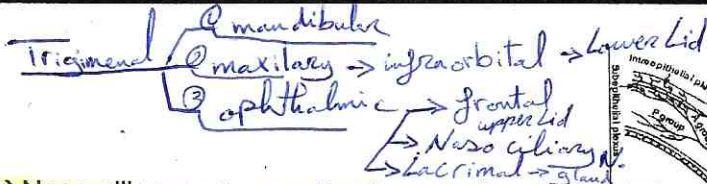 ① mandibular
Trigimenal ② maxilary → infraorbital → Lower Lid
③ ophthalmic → frontal
upper Lid
→ Naso ciliary N.
→ Lacrimal → gland
Intraepithelial pl
Subepithelial plexus
P group
A group